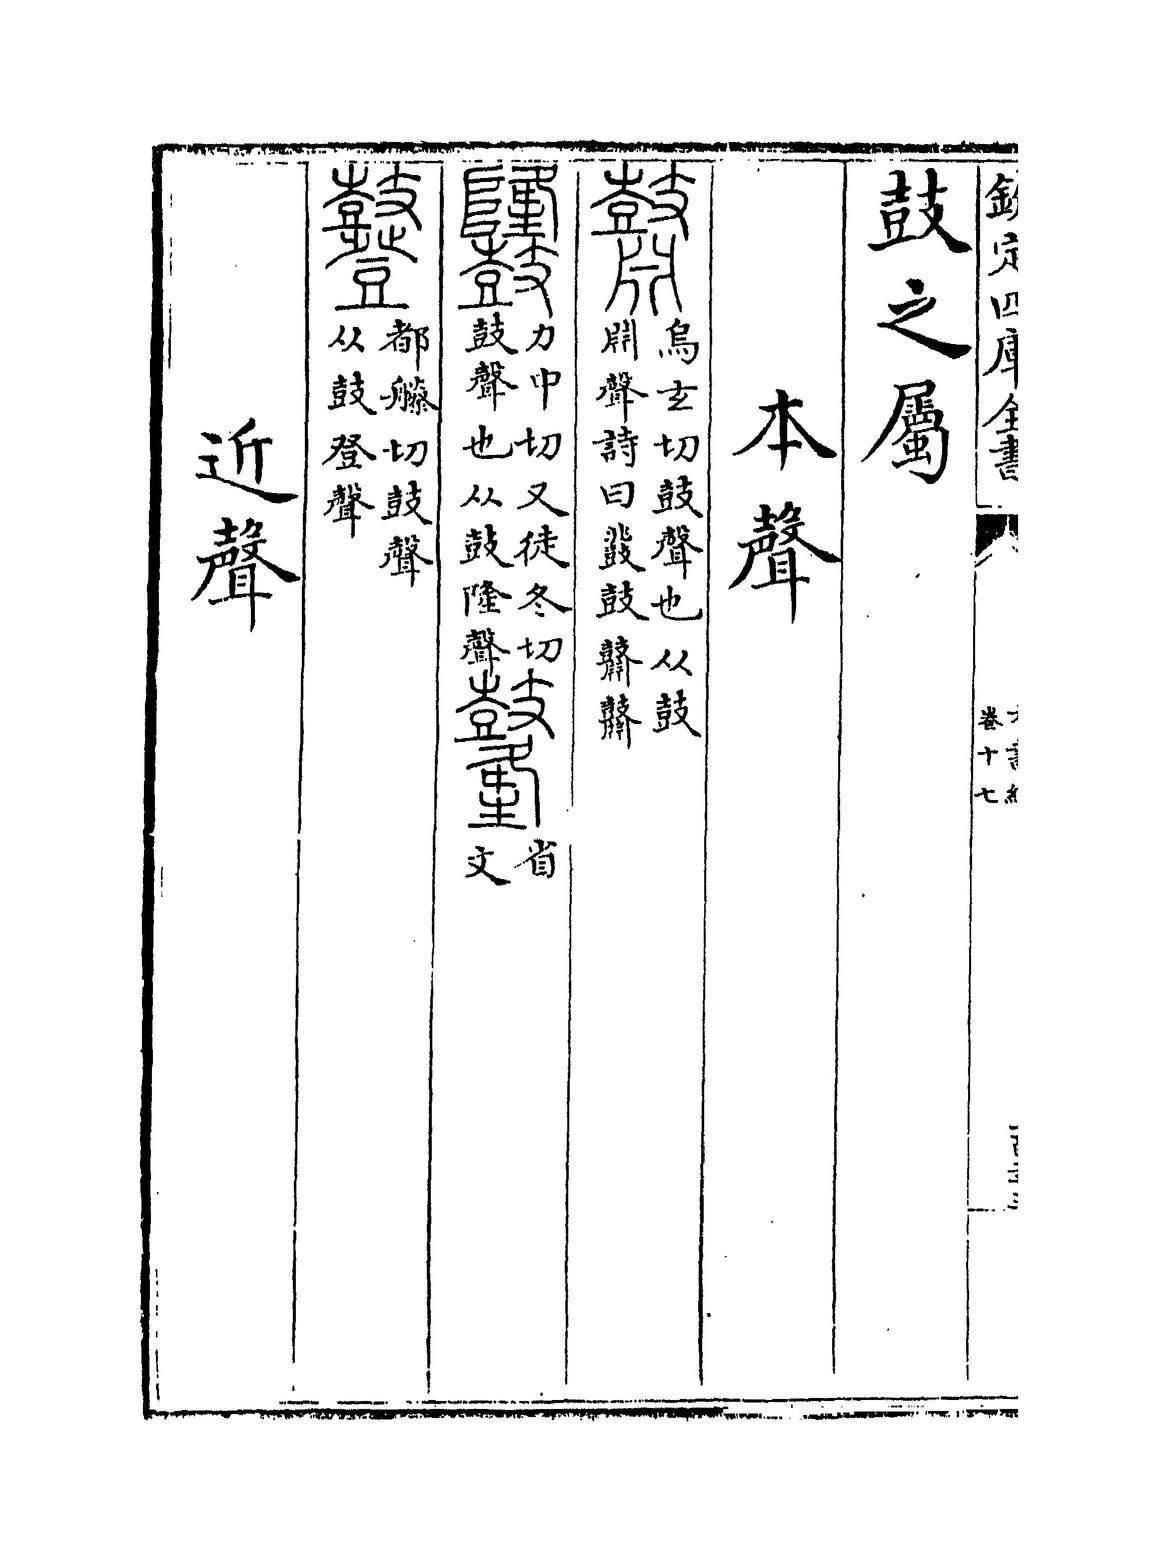 欽定四庫全書
卷十七
鼓之屬
本聲
鼘
烏玄切鼓聲也从鼓
𣶒聲詩曰鼗鼓鼘鼘
力中切又徒冬切
鼓聲也从鼓隆聲
省
文
鼟
都滕切鼓聲
从鼓登聲
近聲